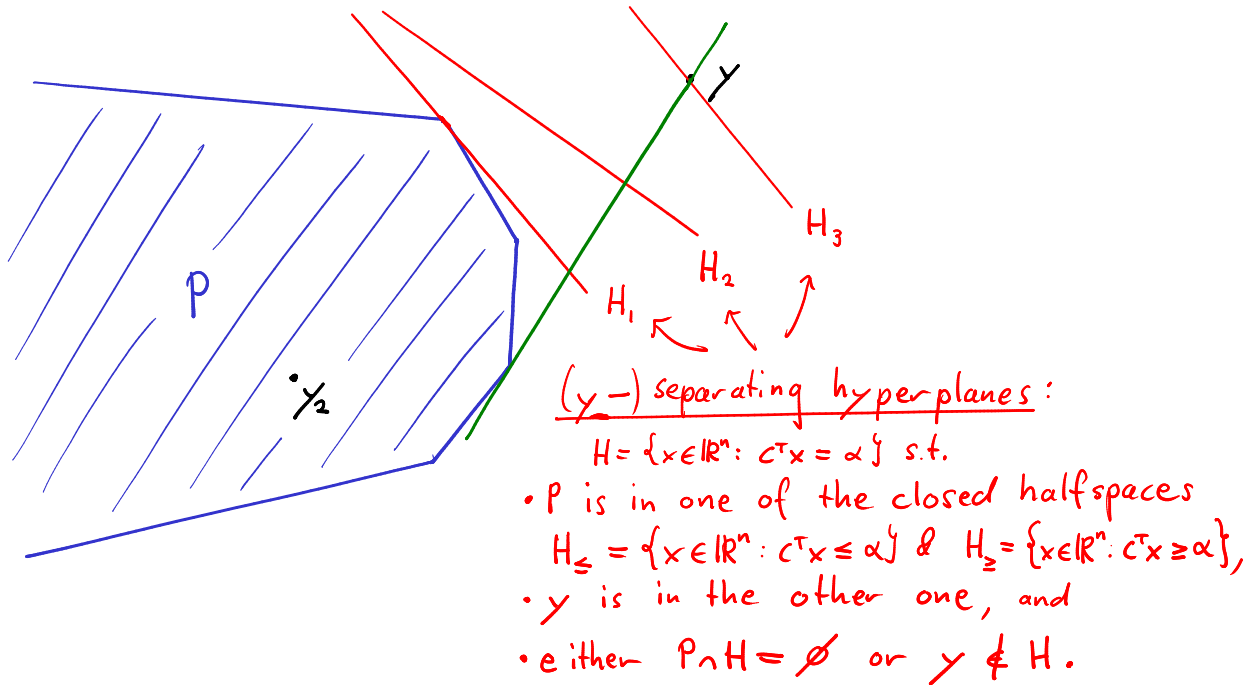 y
P
y₂
H₁
H₂
H₃
(y-) separating hyperplanes:
H = {x ∈ ℝⁿ : cᵀx = α} s.t.
• P is in one of the closed halfspaces
H≤ = {x ∈ ℝⁿ : cᵀx ≤ α} & H≥ = {x ∈ ℝⁿ : cᵀx ≥ α},
• y is in the other one, and
• either P ∩ H = ∅ or y ∉ H.